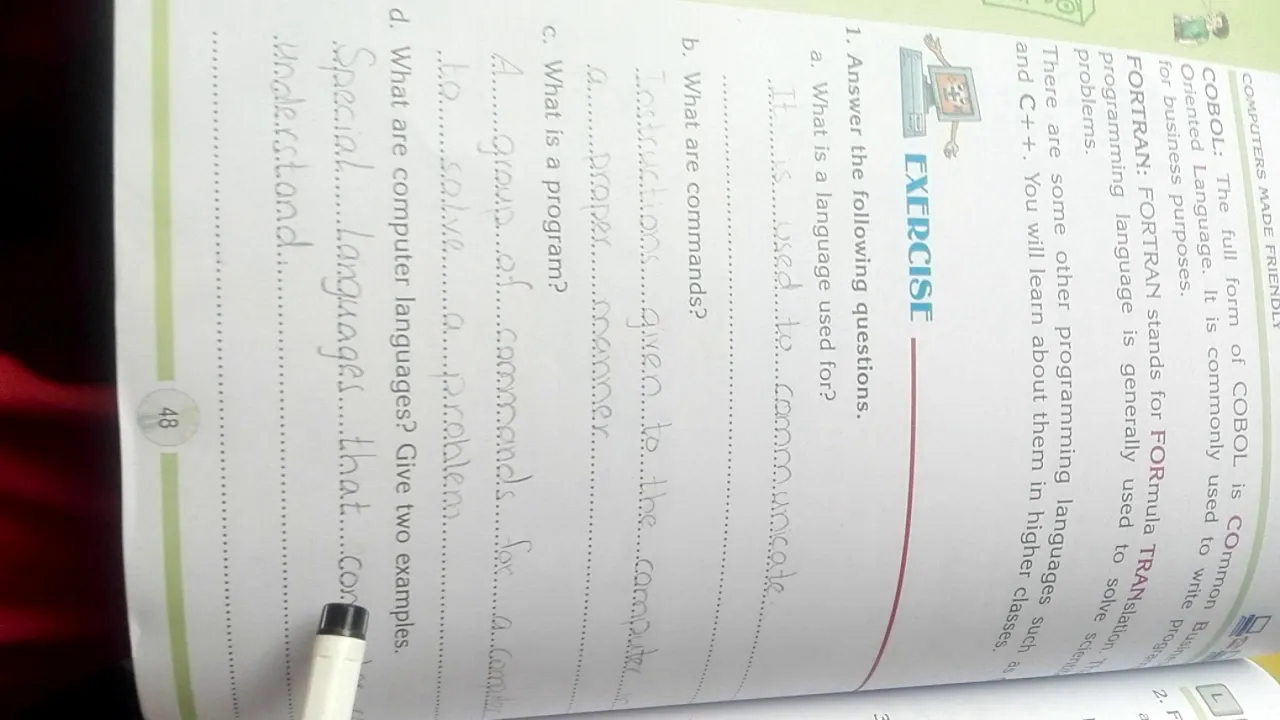 COMPUTERS MADE FRIENDLY
COBOL: The full form of COBOL is COmmon
Oriented Language. It is commonly used to write
for business purposes.
FORTRAN: FORTRAN stands for FORmula TRANslation.
programming language is generally used to solve
problems.
There are some other programming languages such as
and C++. You will learn about them in higher classes.
EXERCISE
1. Answer the following questions.
a. What is a language used for?
It is used to communicate
b. What are commands?
Instructions given to the computer
a proper manner
c. What is a program?
A group of commands for a
to solve a problem
d. What are computer languages? Give two examples.
Special languages that
understand
48
2.
L